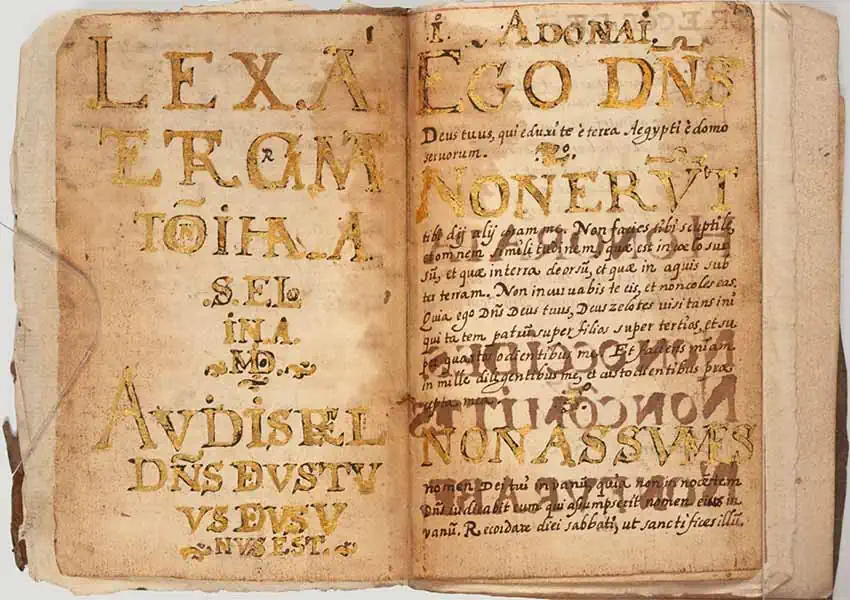 LEX.A.
S.EL
IN.A.
AVDISREL
DÑS DEVSTV
VS DEVSV
NVS EST.
i. ADONAI.
EGO DÑS
Deus tuus, qui eduxi te è terra Aegypti è domo
seruorum.
2º.
NON ERVT
tibi dij alij coram me. Non facies tibi sculptile
et omnem similitudinem, quae est in coelo sur
sũ, et quae in terra deorsũ, et quae in aquis sub
ter terram. Non incuruabis te eis, et non coles eas.
Quia ego Dñs Deus tuus, Deus zelotes visitans ini
quitatem patrũ super filios super tertios, et su
per quartos odientibus me. Et faciens miãm
in mille diligentibus me, et custodientibus prae
cepta mea. 3º.
NON ASSVMES
nomen Dei tui in vanũ, quia non innocẽtem
Dñs iudicabit eum qui assumpserit nomen eius in
vanũ. Recordare diei sabbati, ut sanctifices illũ.